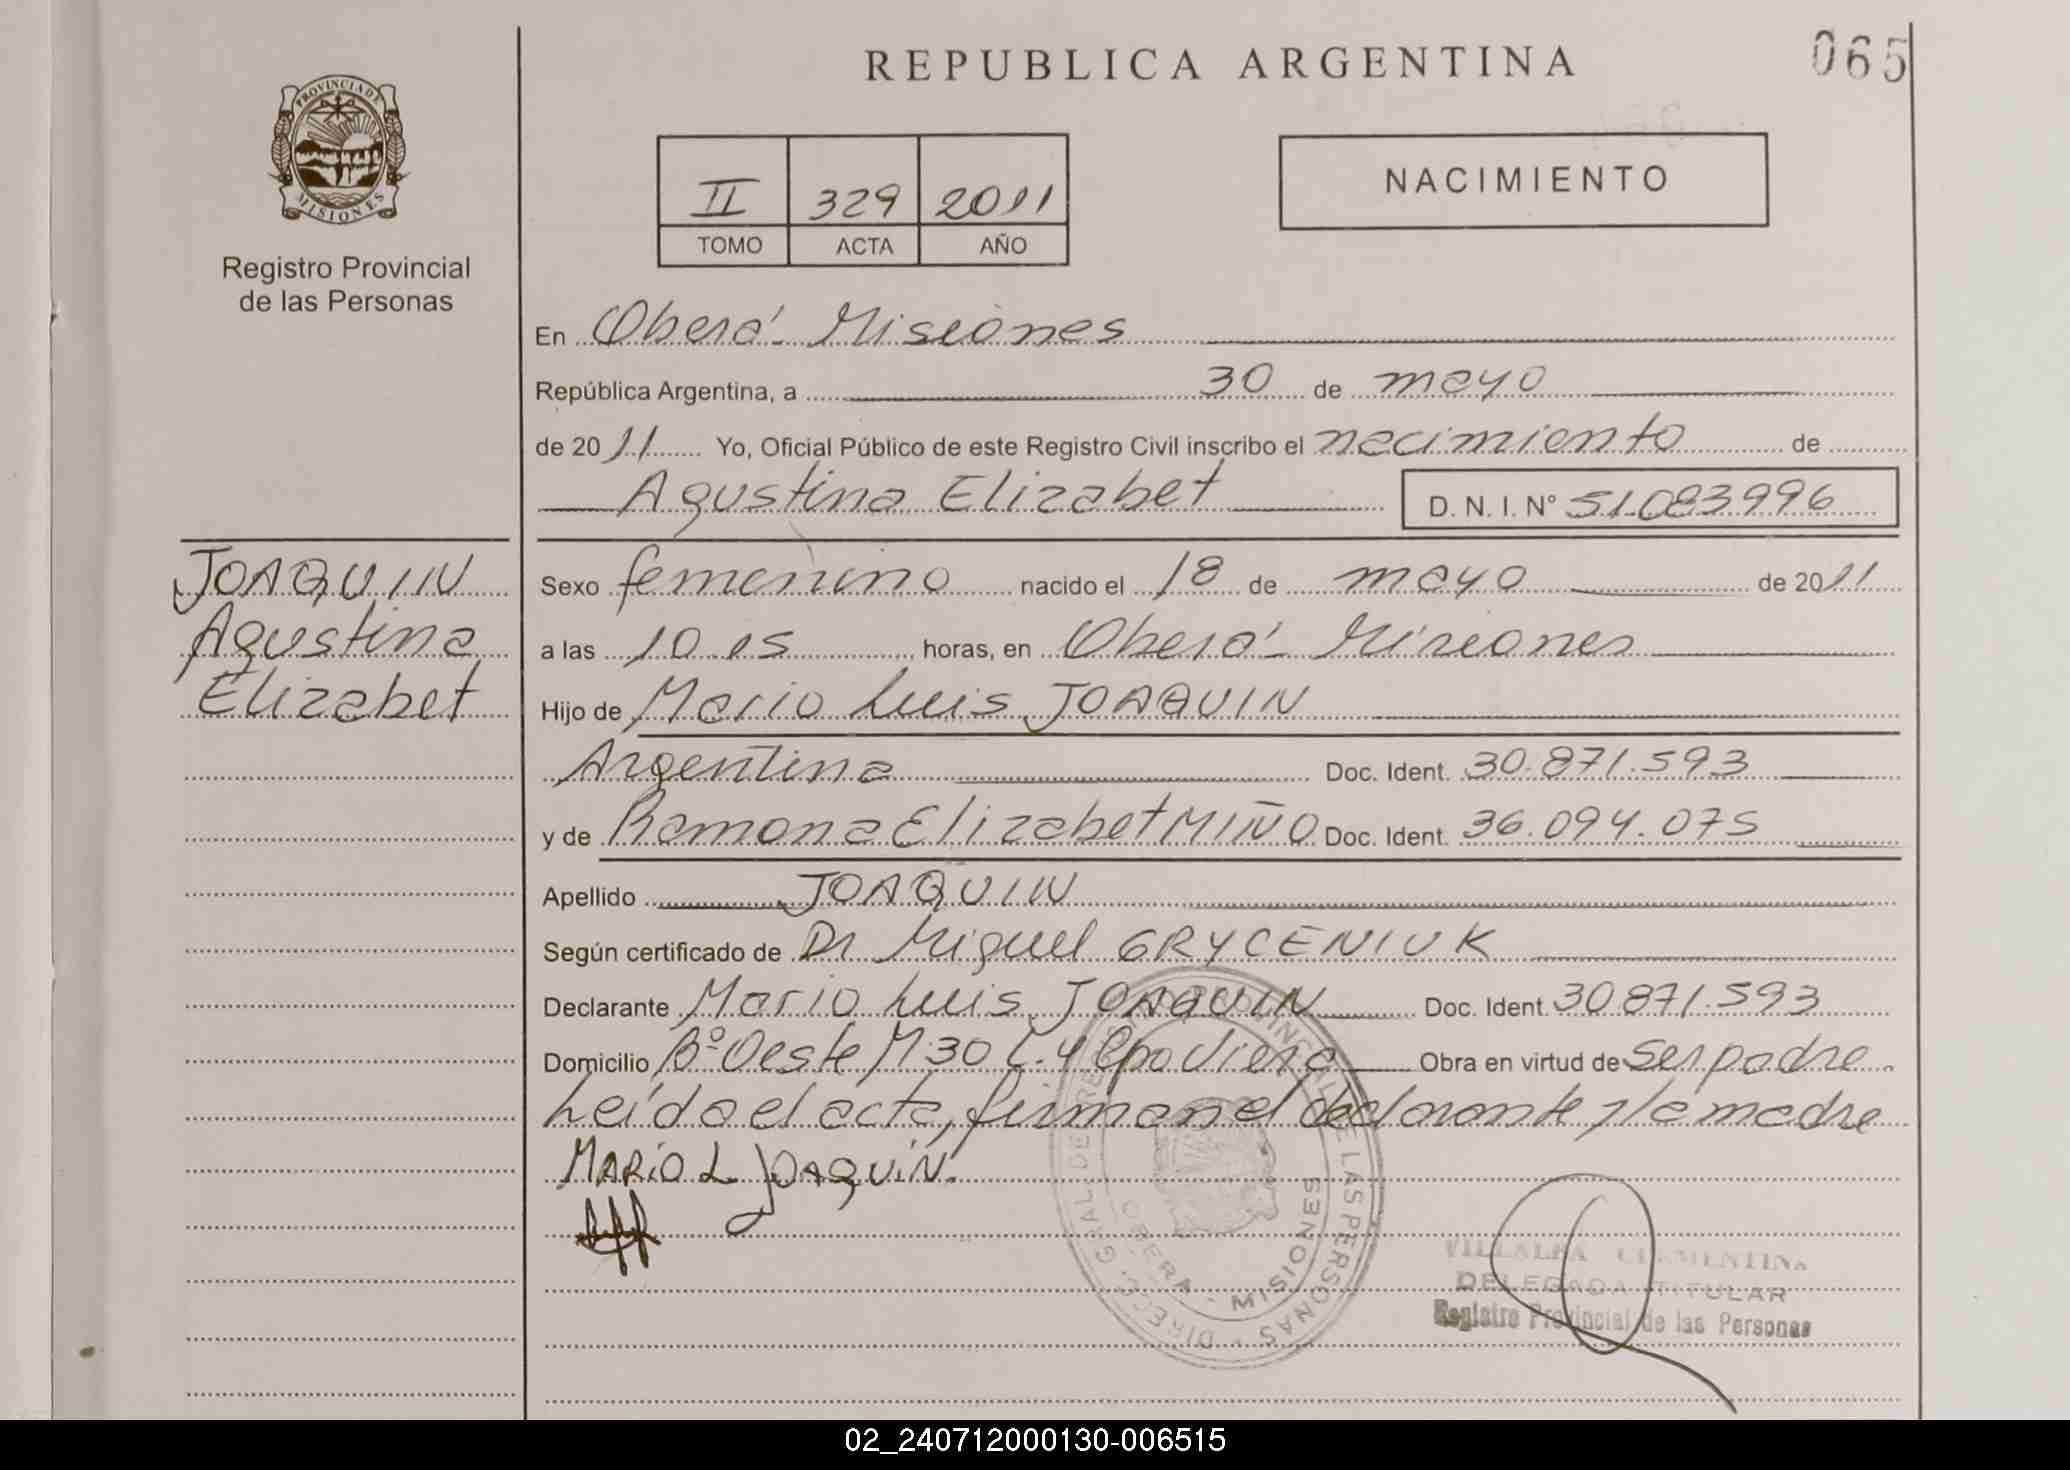 REPUBLICA ARGENTINA
065
PROVINCIA DE
MISIONES
Registro Provincial
de las Personas
II 329 2011
TOMO ACTA AÑO
NACIMIENTO
En Oberá - Misiones
República Argentina, a 30 de mayo
de 2011 Yo, Oficial Público de este Registro Civil inscribo el nacimiento de
Agustina Elizabet D. N. I. Nº 51083996
JOAQUIN
Agustina
Elizabet
Sexo femenino nacido el 18 de mayo de 2011
a las 10.05 horas, en Oberá - Misiones
Hijo de Mario Luis JOAQUIN
Argentina Doc. Ident. 30.871.593
y de Ramona Elizabet MIÑO Doc. Ident. 36.094.075
Apellido JOAQUIN
Según certificado de Dr Miguel GRYCENIUK
Declarante Mario Luis JOAQUIN Doc. Ident. 30.871.593
Domicilio Bº Oeste M:30 C.4 Cpo Viera Obra en virtud de ser padre
Leída el acta, firman el declarante y la madre
MARIO L JOAQUIN.
DIRECC. GRAL. DE REGISTRO PROVINCIAL DE LAS PERSONAS
OBERA - MISIONES
VILLALBA CLEMENTINA
DELEGADA TITULAR
Registro Provincial de las Personas
02_240712000130-006515